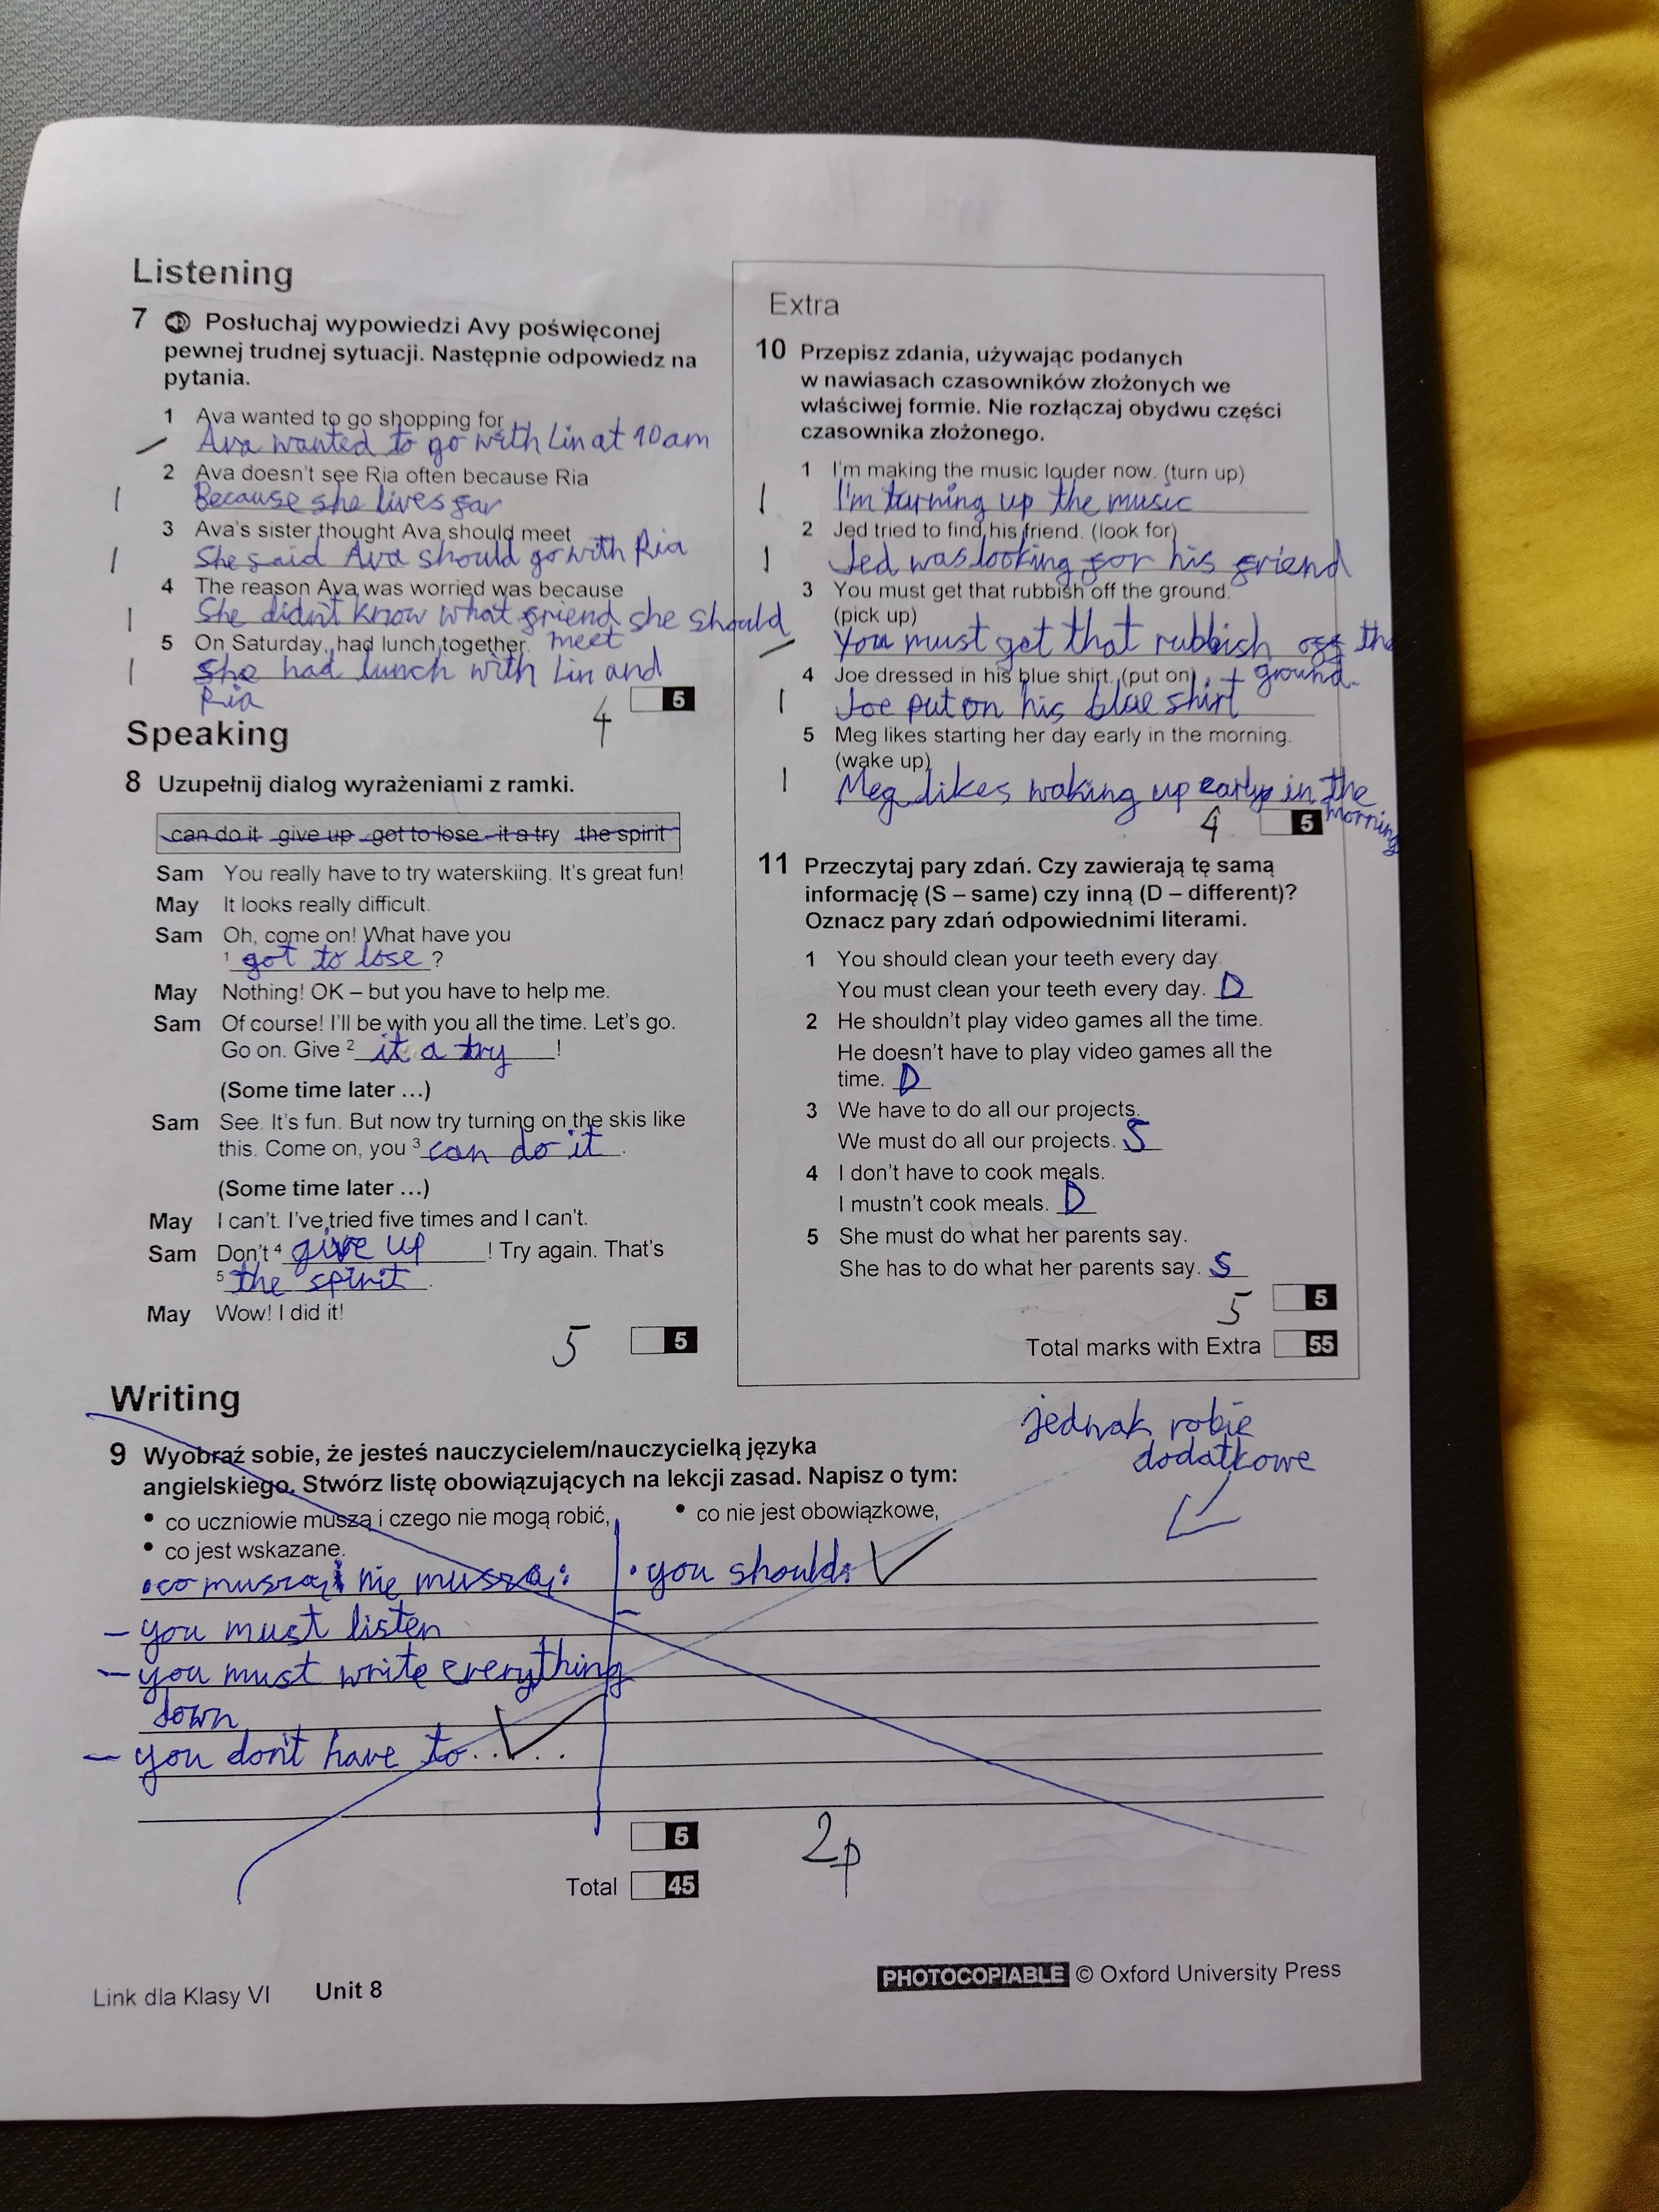 Listening
7 Posłuchaj wypowiedzi Avy poświęconej
pewnej trudnej sytuacji. Następnie odpowiedz na
pytania.
1 Ava wanted to go shopping for
Ava wanted to go with Lin at 10am
2 Ava doesn't see Ria often because Ria
1 Because she lives far
3 Ava's sister thought Ava should meet
1 She said Ava should go with Ria
4 The reason Ava was worried was because
1 She didn't know what friend she should
meet
5 On Saturday, had lunch together.
1 She had lunch with Lin and
Ria
4 5
Speaking
8 Uzupełnij dialog wyrażeniami z ramki.
can do it give up got to lose it a try the spirit
Sam You really have to try waterskiing. It's great fun!
May It looks really difficult.
Sam Oh, come on! What have you
1 got to lose ?
May Nothing! OK – but you have to help me.
Sam Of course! I'll be with you all the time. Let's go.
Go on. Give 2 it a try !
(Some time later ...)
Sam See. It's fun. But now try turning on the skis like
this. Come on, you 3 can do it .
(Some time later ...)
May I can't. I've tried five times and I can't.
Sam Don't 4 give up ! Try again. That's
5 the spirit .
May Wow! I did it!
5 5
Extra
10 Przepisz zdania, używając podanych
w nawiasach czasowników złożonych we
właściwej formie. Nie rozłączaj obydwu części
czasownika złożonego.
1 I'm making the music louder now. (turn up)
1 I'm turning up the music
2 Jed tried to find his friend. (look for)
1 Jed was looking for his friend
3 You must get that rubbish off the ground.
(pick up)
You must get that rubbish off the
ground.
4 Joe dressed in his blue shirt. (put on)
1 Joe put on his blue shirt
5 Meg likes starting her day early in the morning.
(wake up)
1 Meg likes waking up early in the
morning
4 5
11 Przeczytaj pary zdań. Czy zawierają tę samą
informację (S – same) czy inną (D – different)?
Oznacz pary zdań odpowiednimi literami.
1 You should clean your teeth every day.
You must clean your teeth every day. D
2 He shouldn't play video games all the time.
He doesn't have to play video games all the
time. D
3 We have to do all our projects.
We must do all our projects. S
4 I don't have to cook meals.
I mustn't cook meals. D
5 She must do what her parents say.
She has to do what her parents say. S
5 5
Total marks with Extra 55
Writing
jednak robie
dodatkowe
9 Wyobraź sobie, że jesteś nauczycielem/nauczycielką języka
angielskiego. Stwórz listę obowiązujących na lekcji zasad. Napisz o tym:
• co uczniowie muszą i czego nie mogą robić,
• co nie jest obowiązkowe,
• co jest wskazane.
• co muszą i nie muszą:
– you must listen
– you must write everything
down
– you don't have to.....
• you should:
–
5 2p
Total 45
Link dla Klasy VI Unit 8
PHOTOCOPIABLE © Oxford University Press